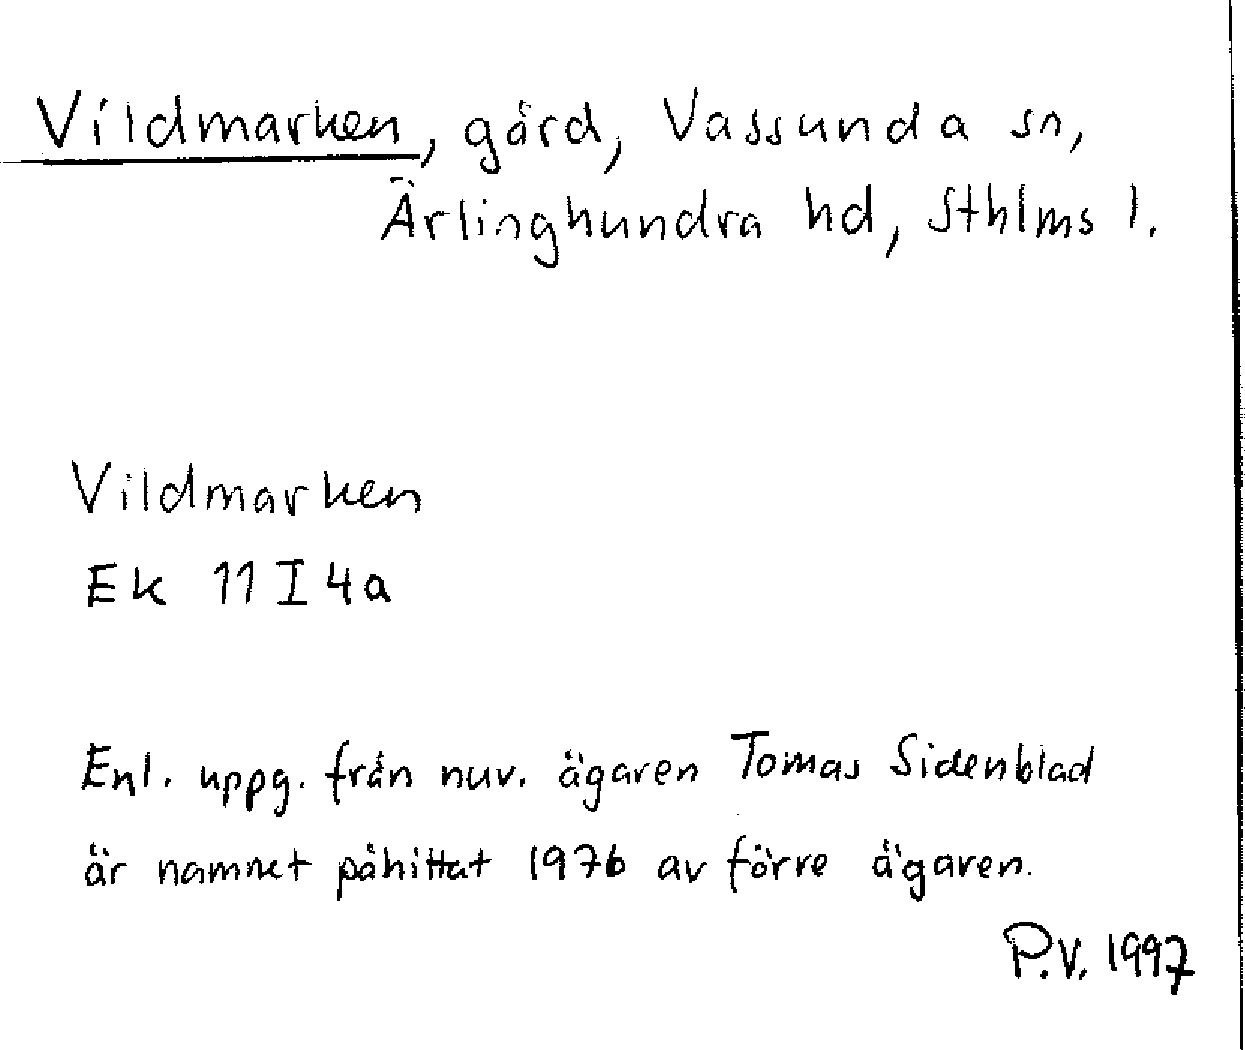 Vildmarken, gård, Vassunda sn,
Ärlinghundra hd, Sthlms l.
Vildmarken
Ek 11 I 4a
Enl. uppg. från nuv. ägaren Tomas Sidenblad
är namnet påhittat 1976 av förre ägaren.
P.V. 1997